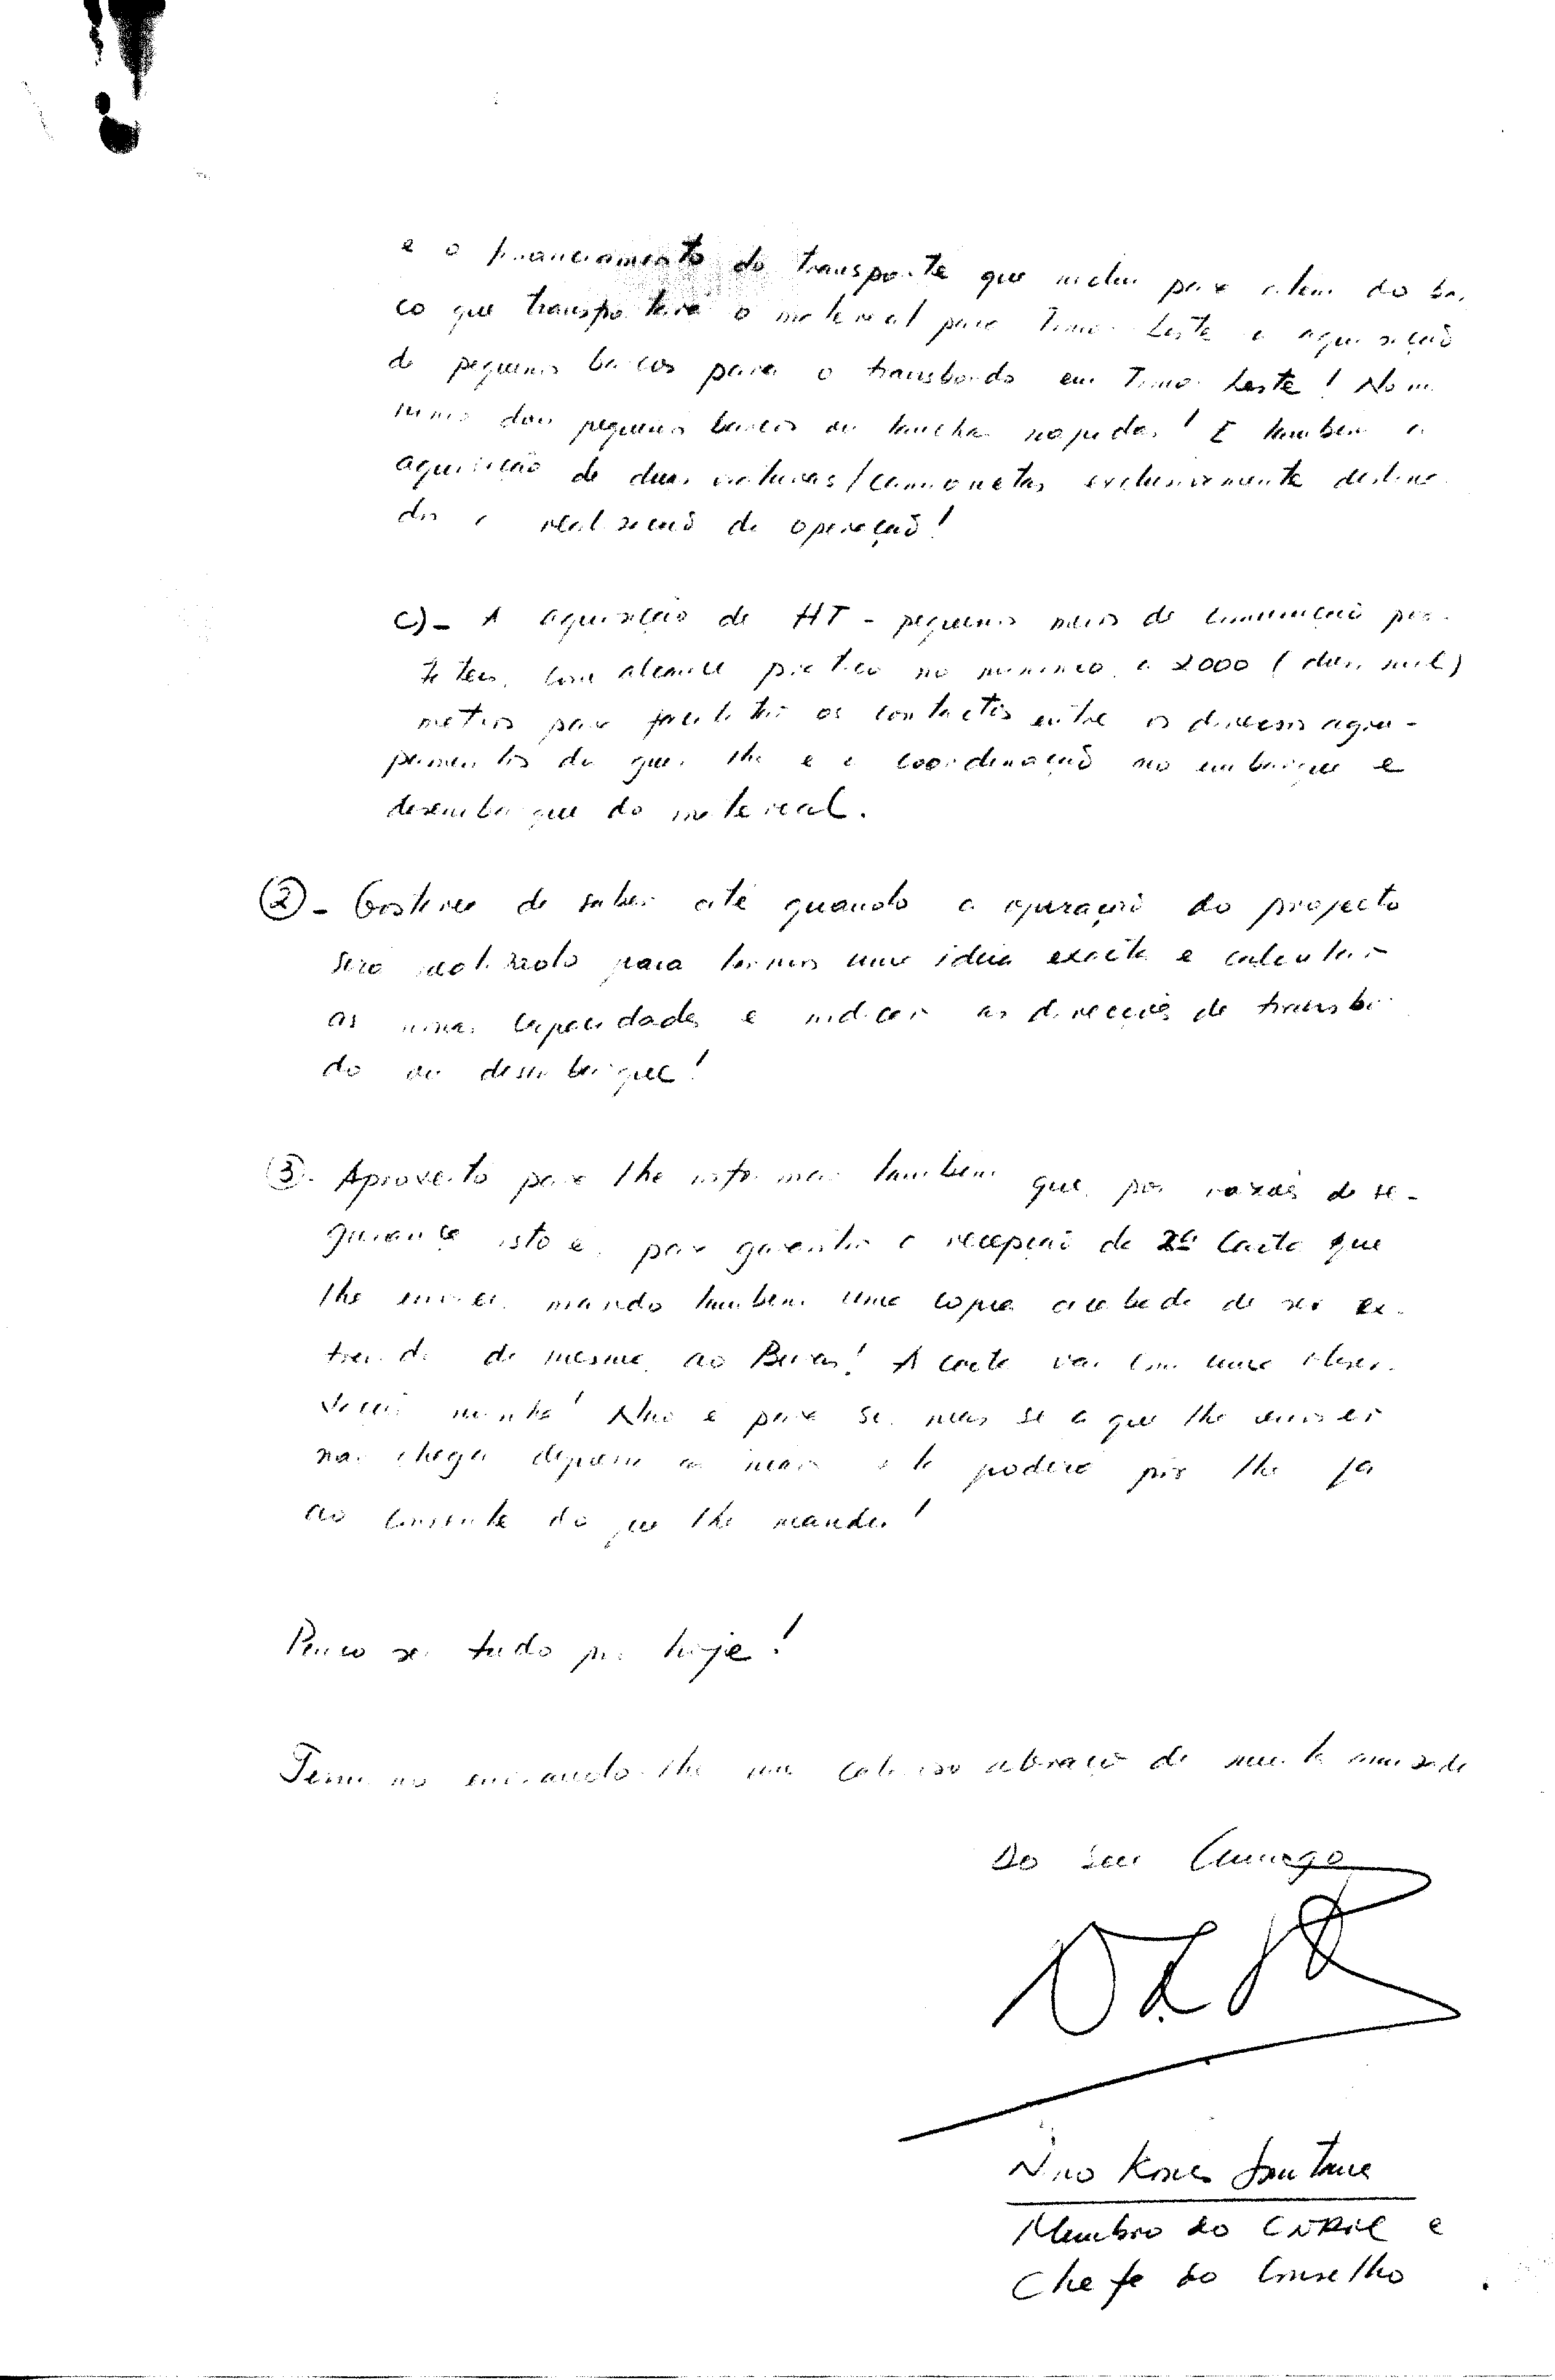 e o financiamento do transporte que inclui para alem do bar
co que transportará o material para Timor Leste a aquisição
de pequenos barcos para o transbordo em Timor Leste! No mi
nimo dois pequenos barcos ou lanchas rapidas! E tambem a
aquisição de duas viaturas/camionetas exclusivamente destina
das a realização da operação!
C)- A aquisição de HT - pequenos meios de comunicação por
teteis, com alcance pratico no minimo a 2000 (dois mil)
metros para facilitar os contactos entre os diversos agru-
pamentos da guerrilha e a coordenação no embarque e
desembarque do material.
②- Gostaria de saber até quando a operação do projecto
será realizado para termos uma ideia exacta e calcular
as nossas capacidades e indicar as direcções de transbor
do ou desembarque!
③- Aproveito para lhe informar tambem que, por razões de se-
gurança isto é, para garantir a recepção da 2ª Carta que
lhe enviei, mando tambem uma copia acabada de ser ex-
traida da mesma, ao Bucar! A carta vai com uma obser-
vação minha! Não é para si, mas se a que lhe enviei
não chegar à mão podera por lhe
ao corrente do que lhe mandei!
Penso ser tudo por hoje!
Termino enviando-lhe um caloroso abraço de muita amizade
Do seu Camigo
Nino Konis Santana
Membro do CNRM e
Chefe do Conselho